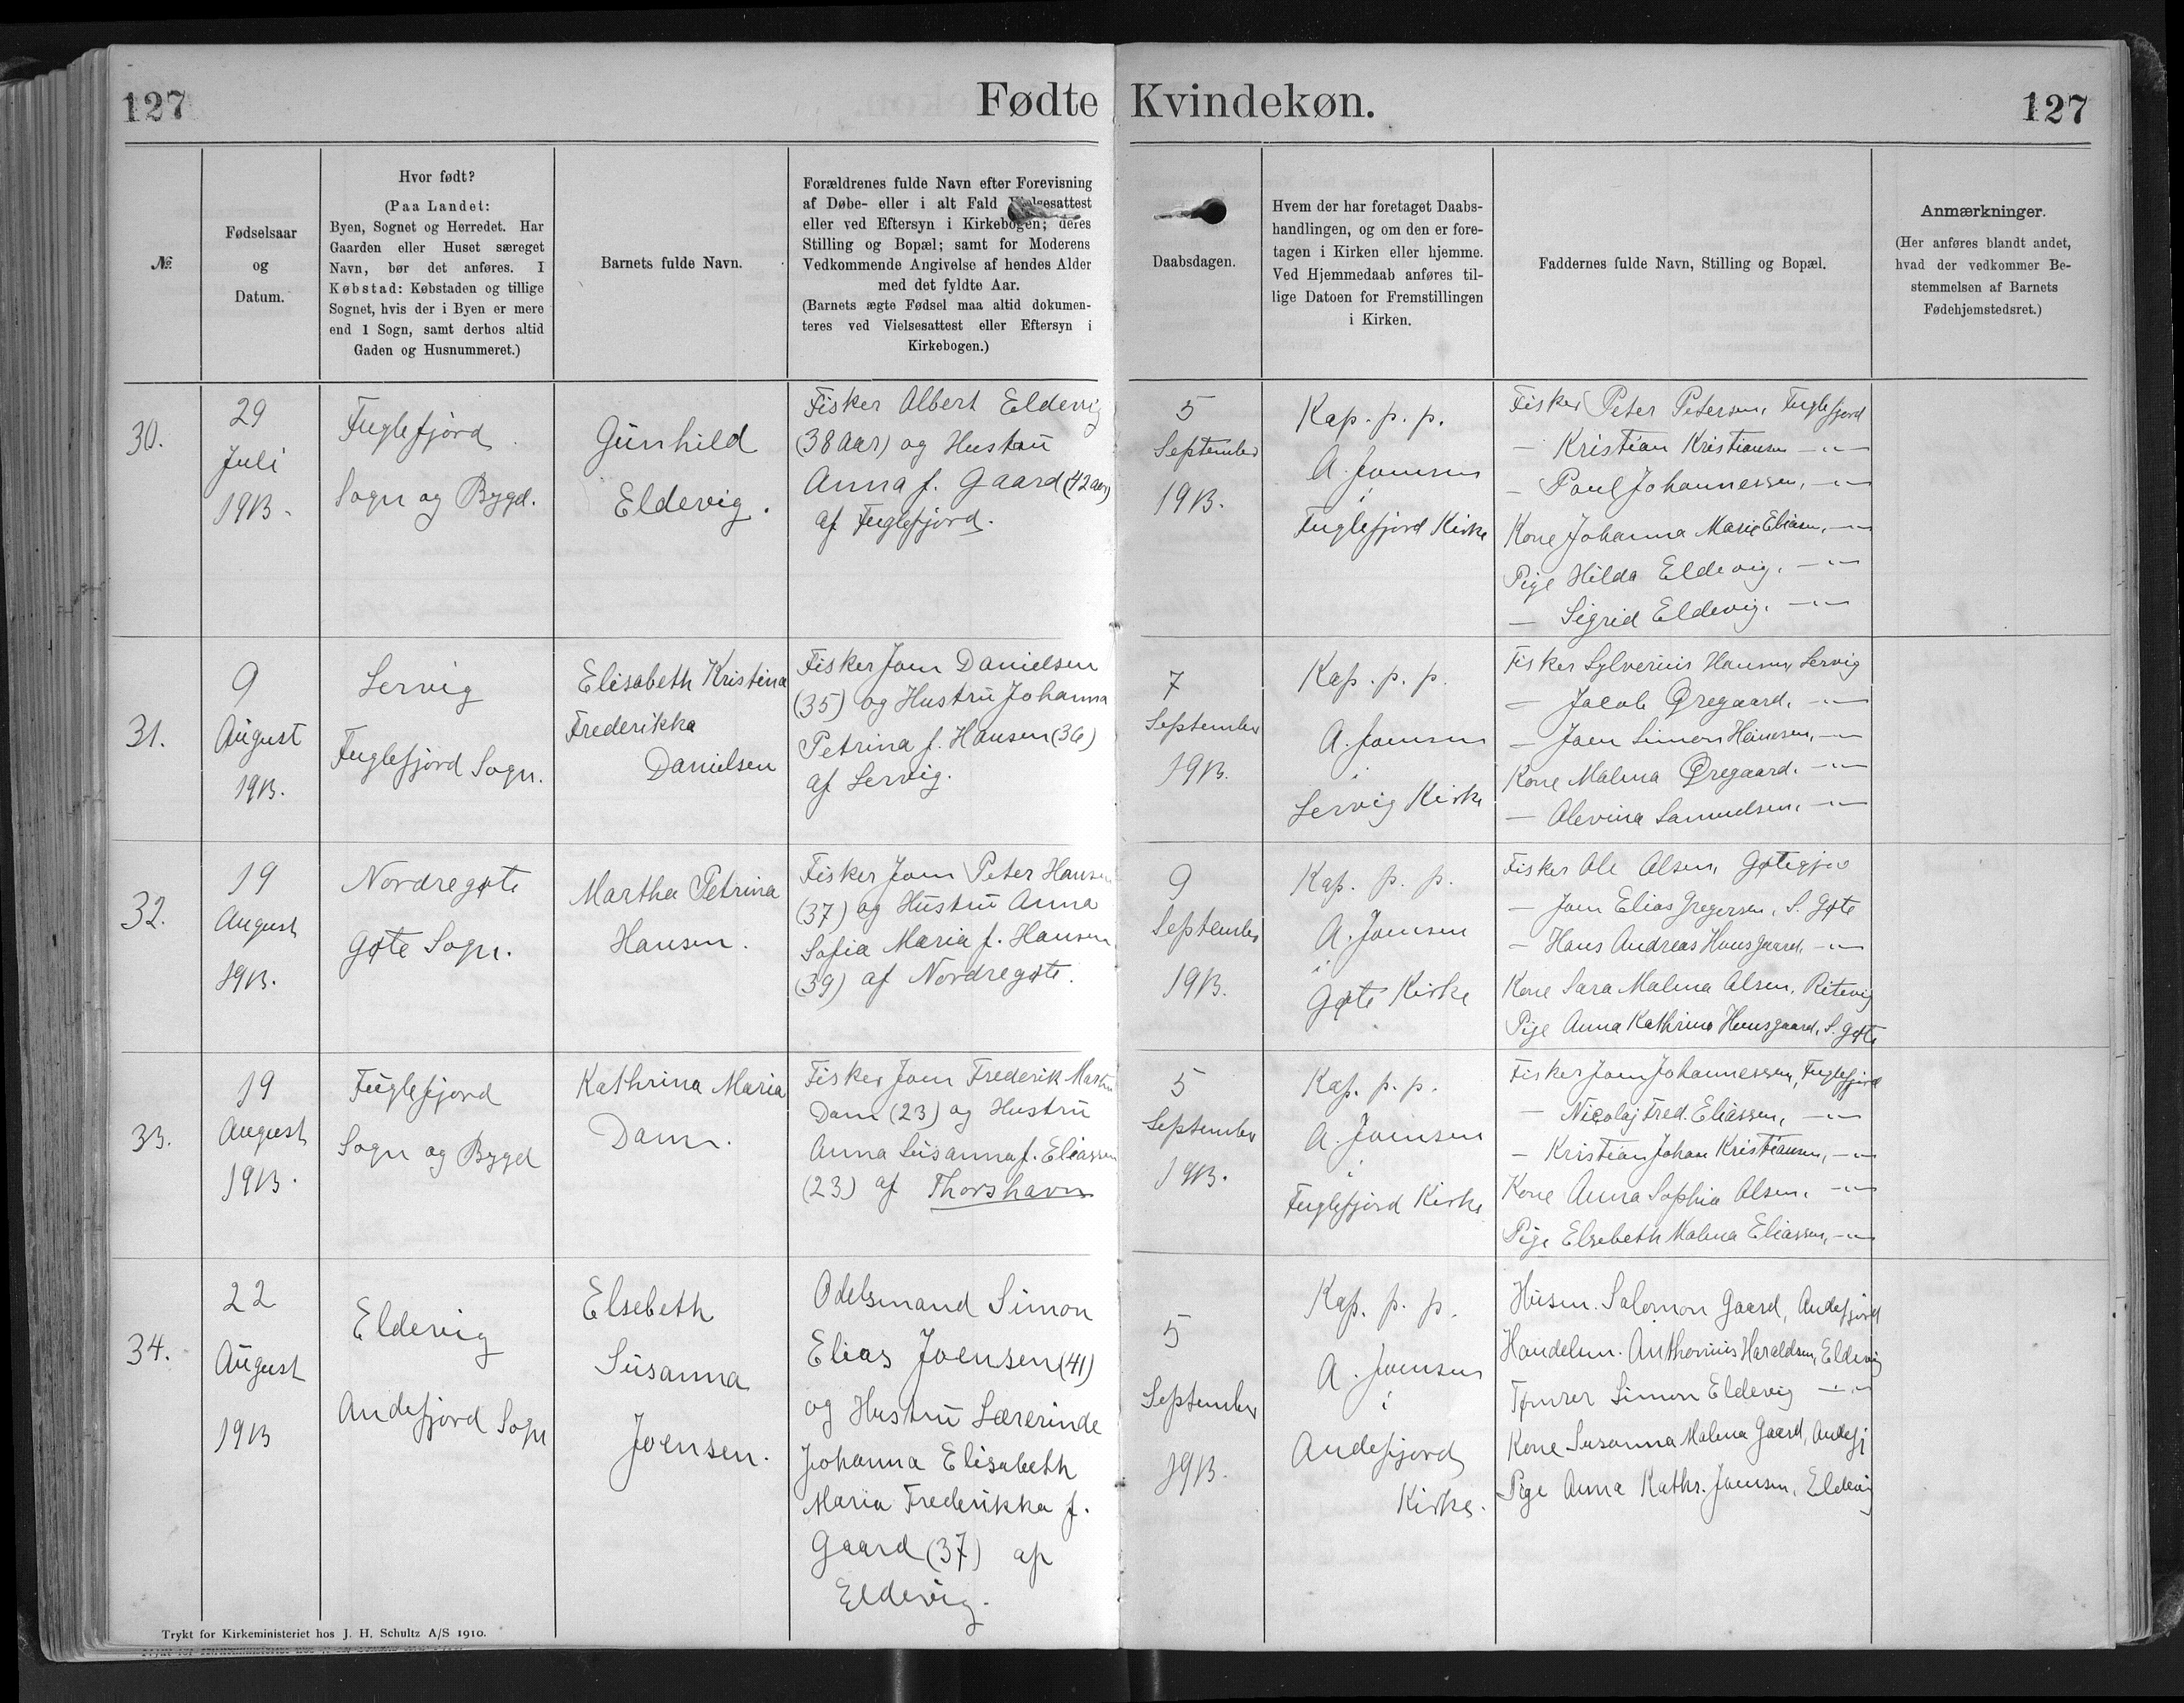 127
Fødte Kvindekøn.
127
№
Fødselsaar
og
Datum.
Hvor født?
(Paa Landet:
Byen, Sognet og Herredet. Har
Gaarden eller Huset særeget
Navn, bør det anføres. I
Købstad: Købstaden og tillige
Sognet, hvis der i Byen er mere
end 1 Sogn, samt derhos altid
Gaden og Husnummeret.)
Barnets fulde Navn.
Forældrenes fulde Navn efter Forevisning
af Døbe- eller i alt Fald Vielsesattest
eller ved Eftersyn i Kirkebogen; deres
Stilling og Bopæl; samt for Moderens
Vedkommende Angivelse af hendes Alder
med det fyldte Aar.
(Barnets ægte Fødsel maa altid dokumen-
teres ved Vielsesattest eller Eftersyn i
Kirkebogen.)
Daabsdagen.
Hvem der har foretaget Daabs-
handlingen, og om den er fore-
tagen i Kirken eller hjemme.
Ved Hjemmedaab anføres til-
lige Datoen for Fremstillingen
i Kirken.
Faddernes fulde Navn, Stilling og Bopæl.
Anmærkninger.
(Her anføres blandt andet,
hvad der vedkommer Be-
stemmelsen af Barnets
Fødehjemstedsret.)
30.
29
Juli
1913.
Fuglefjord
Sogn og Bygd.
Gunhild
Eldevig.
Fisker Albert Eldevig
(38 aar) og Hustru
Anna f. Gaard (42 aar)
af Fuglefjord.
5
September
1913.
Kap. p. p.
A. Joensen
i
Fuglefjord Kirke
Fisker Peter Petersen, Fuglefjord
— Kristian Kristiansen —"—
— Poul Johannessen, —"—
Kone Johanna Marie Eliasen, —"—
Pige Hilda Eldevig, —"—
— Sigrid Eldevig, —"—
31.
9
August
1913.
Lervig
Fuglefjord Sogn.
Elisabeth Kristina
Frederikka
Danielsen
Fisker Joen Danielsen
(35) og Hustru Johanna
Petrina f. Hansen (36)
af Lervig.
7
September
1913.
Kap. p. p.
A. Joensen
i
Lervig Kirke
Fisker Sylverius Hansen, Lervig
— Jacob Øregaard, —"—
— Joen Simon Heinesen, —"—
Kone Malena Øregaard, —"—
— Olevina Samuelsen, —"—
32.
19
August
1913.
Nordregøte
Gøte Sogn.
Martha Petrina
Hansen.
Fisker Joen Peter Hansen
(37) og Hustru Anna
Sofia Maria f. Hansen
(39) af Nordregøte.
9
September
1913.
Kap. p. p.
A. Joensen
i
Gøte Kirke
Fisker Ole Olsen, Gøtegjov
— Joen Elias Gregersen, S. Gøte
— Hans Andreas Huusgaard, —"—
Kone Sara Malena Olsen, Ritevig
Pige Anna Kathrina Huusgaard, S. Gøte
33.
19
August
1913.
Fuglefjord
Sogn og Bygd
Kathrina Maria
Dam.
Fisker Joen Frederik Martin
Dam (23) og Hustru
Anna Susanna f. Eliassen
(23) af Thorshavn
5
September
1913.
Kap. p. p.
A. Joensen
i
Fuglefjord Kirke
Fisker Joen Johannessen, Fuglefjord
— Nicolaj Fred. Eliassen, —"—
— Kristian Johan Kristiansen, —"—
Kone Anna Sophia Olsen, —"—
Pige Elsebeth Malena Eliassen, —"—
34.
22
August
1913
Eldevig
Andefjord Sogn
Elsebeth
Susanna
Joensen.
Odelsmand Simon
Elias Joensen (41)
og Hustru Lærerinde
Johanna Elisabeth
Maria Frederikka f.
Gaard (37) af
Eldevig.
5
September
1913.
Kap. p. p.
A. Joensen
i
Andefjord
Kirke.
Husm. Salomon Gaard, Andefjord
Handelsm. Anthonius Haraldsen, Eldevig
Tømrer Simon Eldevig —"—
Kone Susanna Malena Gaard, Andefj
Pige Anna Kathr. Joensen, Eldevig
Trykt for Kirkeministeriet hos J. H. Schultz A/S 1910.